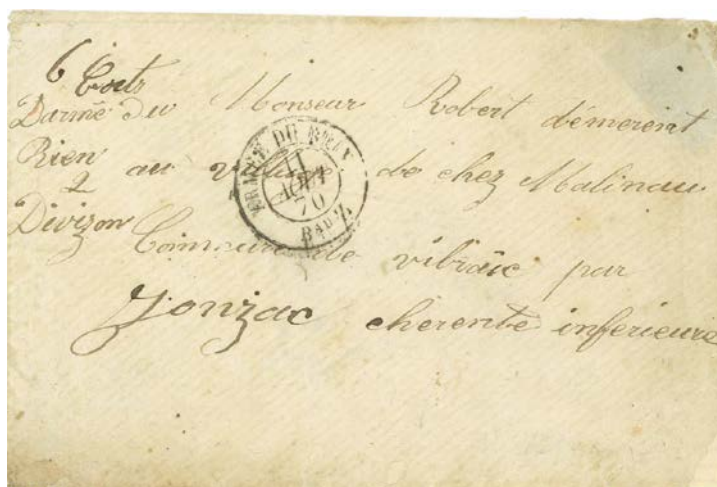 6 Corts
Darmé du
Rien
2
Divizon
Monseur Robert démereint
au village de chez Malinau
Commune de vibrâic par
Jonzac cherente inferieure
ARMÉE DU RHIN
11
AOUT
70
BAU Z